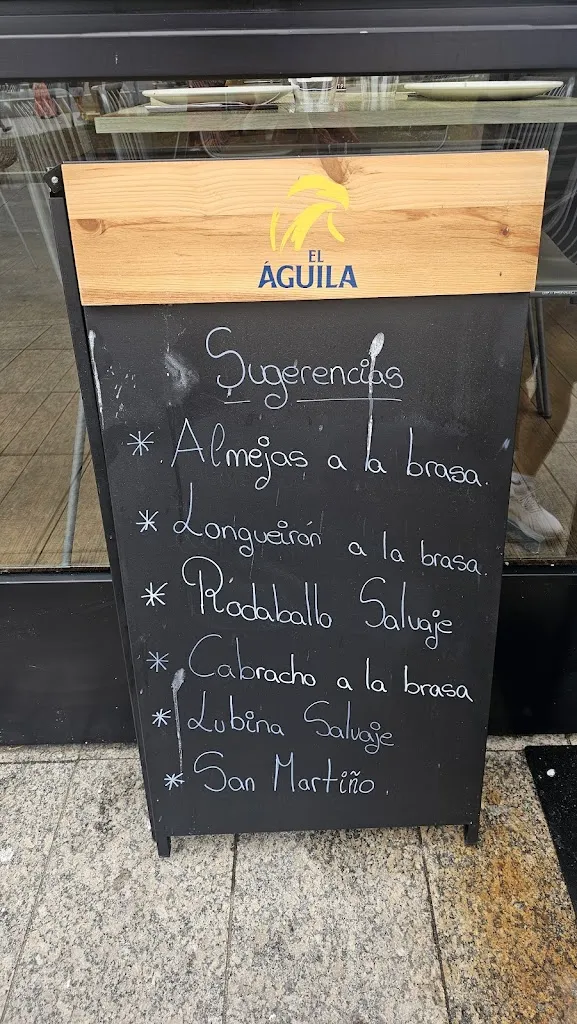 EL
ÁGUILA
Sugerencias
* Almejas a la brasa.
* Longueirón a la brasa.
* Rodaballo Salvaje
* Cabracho a la brasa
* Lubina Salvaje
* San Martiño.